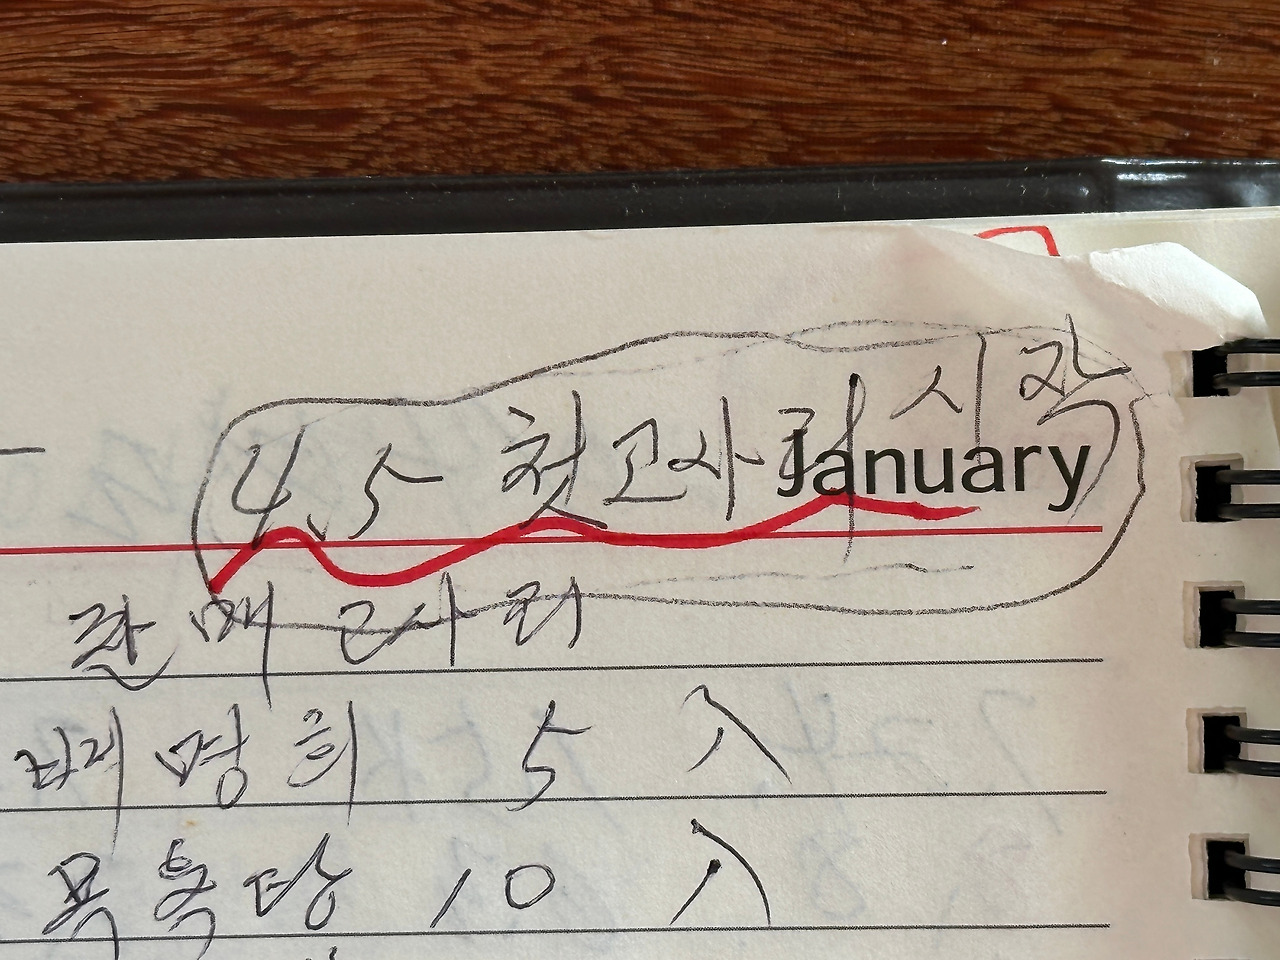 4.5 첫고사리 시작
January
판매 고사리
최명희 5 入
목욕당 10 入